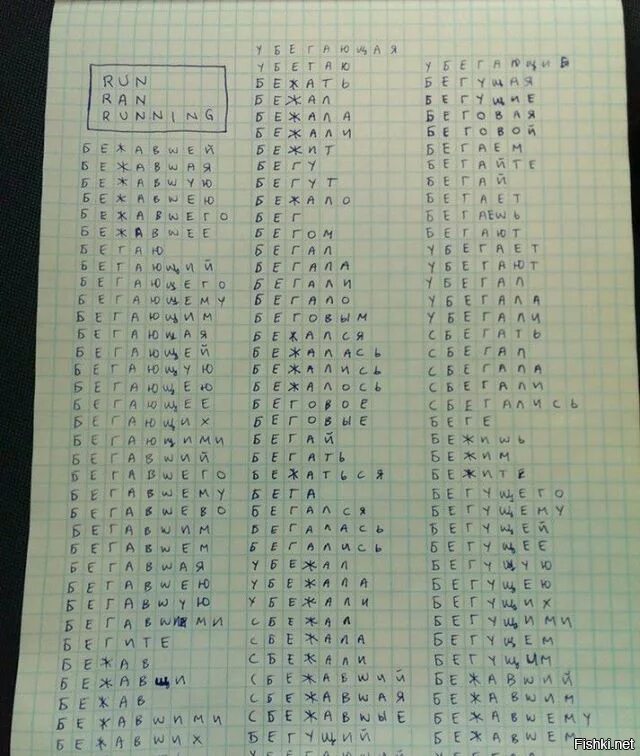 RUN
RAN
RUNNING
БЕЖАВШЕЙ
БЕЖАВШАЯ
БЕЖАВШУЮ
БЕЖАВШЕЮ
БЕЖАВШЕГО
БЕЖАВШЕЕ
БЕГАЮ
БЕГАЮЩИЙ
БЕГАЮЩЕГО
БЕГАЮЩЕМУ
БЕГАЮЩИМ
БЕГАЮЩАЯ
БЕГАЮЩЕЙ
БЕГАЮЩУЮ
БЕГАЮЩЕЮ
БЕГАЮЩЕЕ
БЕГАЮЩИХ
БЕГАЮЩИМИ
БЕГАВШИЙ
БЕГАВШЕГО
БЕГАВШЕМУ
БЕГАВШЕВО
БЕГАВШИМ
БЕГАВШЕМ
БЕГАВШАЯ
БЕГАВШЕЮ
БЕГАВШУЮ
БЕГАВШИМИ
БЕГИТЕ
БЕЖАВ
БЕЖАВЩИ
БЕЖАВ
БЕЖАВШИМИ
БЕЖАВШИХ
УБЕГАЮЩАЯ
УБЕГАЮ
БЕЖАТЬ
БЕЖАЛ
БЕЖАЛА
БЕЖАЛИ
БЕЖИТ
БЕГУ
БЕГУТ
БЕЖАЛО
БЕГ
БЕГОМ
БЕГАЛ
БЕГАЛА
БЕГАЛИ
БЕГАЛО
БЕГОВЫМ
БЕЖАЛСЯ
БЕЖАЛАСЬ
БЕЖАЛИСЬ
БЕЖАЛОСЬ
БЕГОВОЕ
БЕГОВЫЕ
БЕГАЙ
БЕГАТЬ
БЕЖАТЬСЯ
БЕГА
БЕГАЛСЯ
БЕГАЛАСЬ
БЕГАЛИСЬ
УБЕЖАЛ
УБЕЖАЛА
УБЕЖАЛИ
СБЕЖАЛ
СБЕЖАЛА
СБЕЖАЛИ
СБЕЖАВШИЙ
СБЕЖАВШАЯ
СБЕЖАВШЫЕ
БЕГУЩИЙ
УБЕГАЮЩИЕ
БЕГУЩАЯ
БЕГУЩИЕ
БЕГОВАЯ
БЕГОВОЙ
БЕГАЕМ
БЕГАЙТЕ
БЕГАЙ
БЕГАЕТ
БЕГАЕШЬ
БЕГАЮТ
УБЕГАЕТ
УБЕГАЮТ
УБЕГАЛ
УБЕГАЛА
УБЕГАЛИ
СБЕГАТЬ
СБЕГАЛ
СБЕГАЛА
СБЕГАЛИ
СБЕГАЛИСЬ
БЕГЕ
БЕЖИШЬ
БЕЖИМ
БЕЖИТЕ
БЕГУЩЕГО
БЕГУЩЕМУ
БЕГУЩЕЙ
БЕГУЩЕЕ
БЕГУЩУЮ
БЕГУЩЕЮ
БЕГУЩИХ
БЕГУЩИМИ
БЕГУЩЕМ
БЕГУЩИМ
БЕЖАВШИЙ
БЕЖАВШИМ
БЕЖАВШЕМУ
БЕЖАВШЕМ
Fishki.net